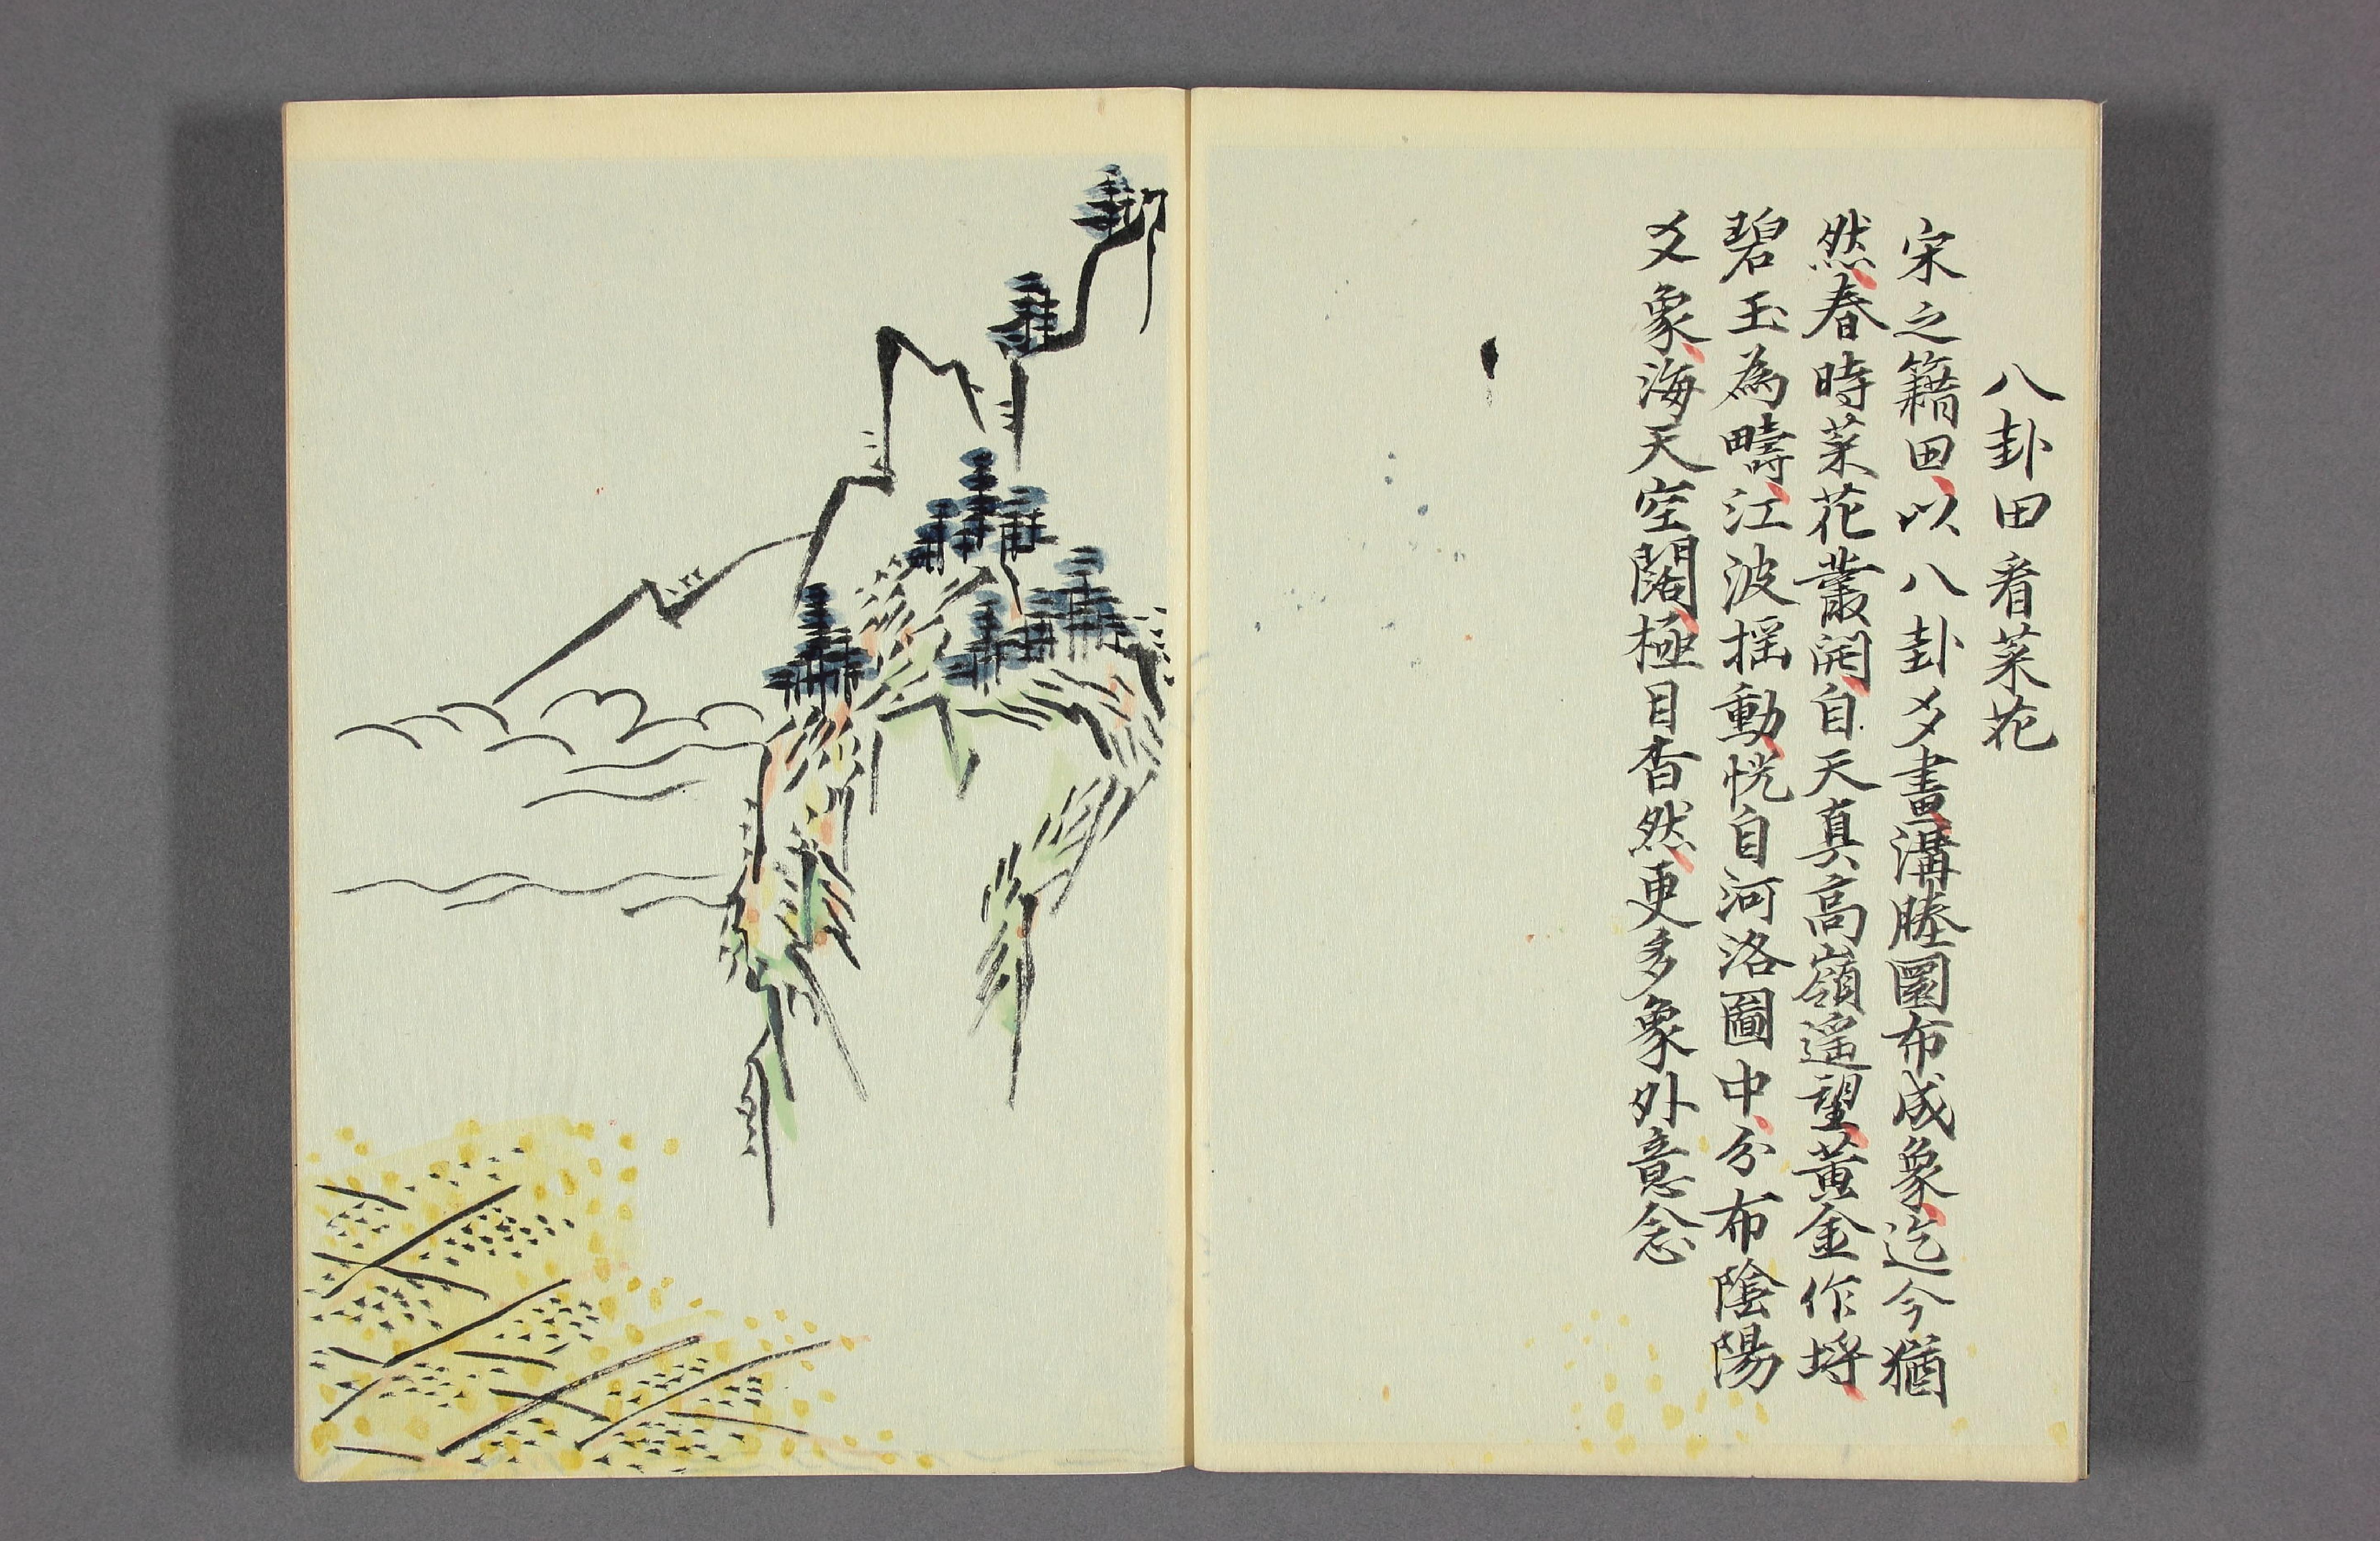 八卦田看菜花
宋之籍田、以八卦爻畫、溝塍圜布成象、迄今猶
然、春時菜花叢開、自天真高嶺遥望、黄金作埒、
碧玉為疇、江波揺動、恍自河洛圖中、分布陰陽
爻象、海天空闊、極目杳然、更多象外意念